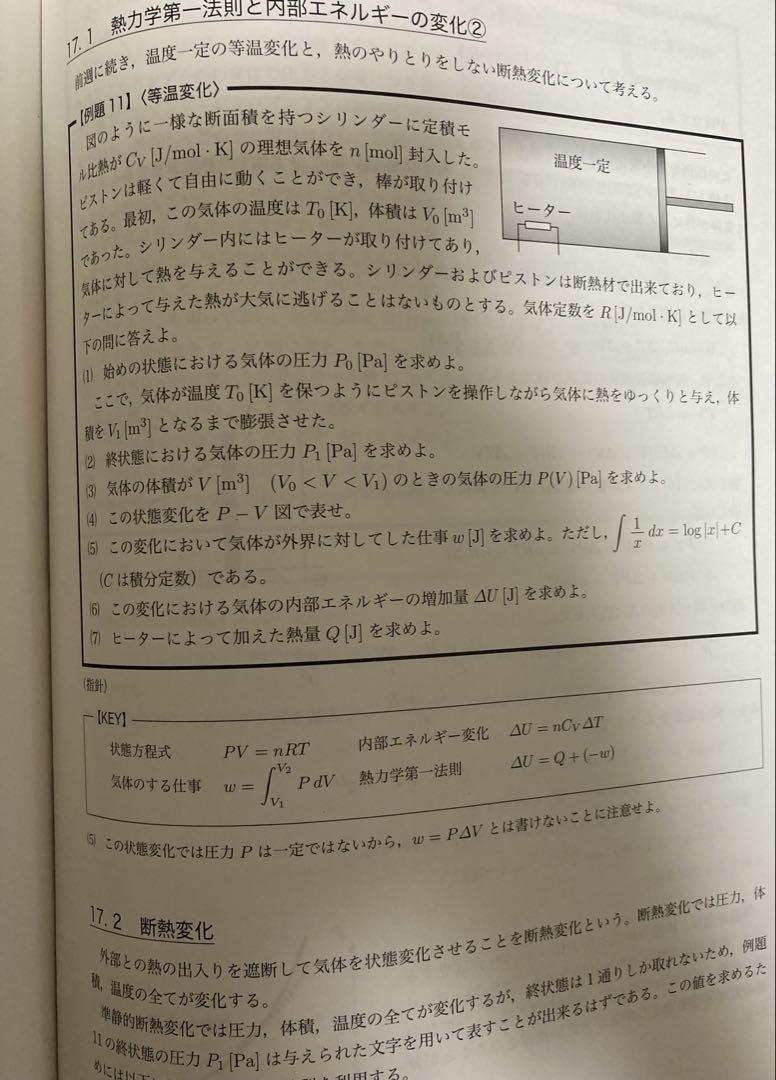 17.1 熱力学第一法則と内部エネルギーの変化②
前週に続き，温度一定の等温変化と，熱のやりとりをしない断熱変化について考える。
【例題 11】〈等温変化〉
図のように一様な断面積を持つシリンダーに定積モ
ル比熱が C_V [J/mol·K] の理想気体を n [mol] 封入した。
ピストンは軽くて自由に動くことができ，棒が取り付け
てある。最初，この気体の温度は T₀ [K]，体積は V₀ [m³]
であった。シリンダー内にはヒーターが取り付けてあり，
温度一定
ヒーター
気体に対して熱を与えることができる。シリンダーおよびピストンは断熱材で出来ており，ヒー
ターによって与えた熱が大気に逃げることはないものとする。気体定数を R [J/mol·K] として以
下の問に答えよ。
⑴ 始めの状態における気体の圧力 P₀ [Pa] を求めよ。
ここで，気体が温度 T₀ [K] を保つようにピストンを操作しながら気体に熱をゆっくりと与え，体
積を V₁ [m³] となるまで膨張させた。
⑵ 終状態における気体の圧力 P₁ [Pa] を求めよ。
⑶ 気体の体積が V [m³] (V₀ < V < V₁) のときの気体の圧力 P(V) [Pa] を求めよ。
⑷ この状態変化を P − V 図で表せ。
⑸ この変化において気体が外界に対してした仕事 w [J] を求めよ。ただし，∫ 1/x dx = log|x|+C
(C は積分定数) である。
⑹ この変化における気体の内部エネルギーの増加量 ΔU [J] を求めよ。
⑺ ヒーターによって加えた熱量 Q [J] を求めよ。
(指針)
【KEY】
状態方程式 PV = nRT 内部エネルギー変化 ΔU = nC_VΔT
気体のする仕事 w = ∫_{V₁}^{V₂} P dV 熱力学第一法則 ΔU = Q + (−w)
⑸ この状態変化では圧力 P は一定ではないから，w = PΔV とは書けないことに注意せよ。
17.2 断熱変化
外部との熱の出入りを遮断して気体を状態変化させることを断熱変化という。断熱変化では圧力，体
積，温度の全てが変化する。
準静的断熱変化では圧力，体積，温度の全てが変化するが，終状態は 1 通りしか取れないため，例題
11 の終状態の圧力 P₁ [Pa] は与えられた文字を用いて表すことが出来るはずである。この値を求めるた
めには以下
利用する。